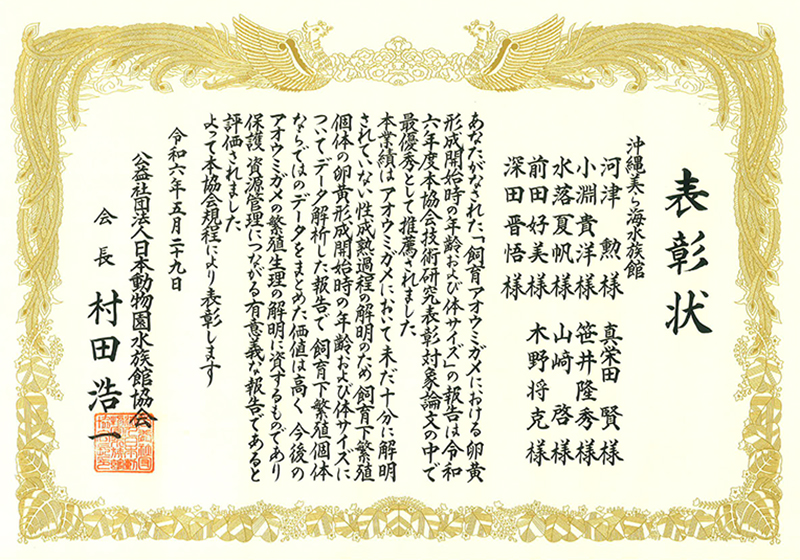 表彰状
沖縄美ら海水族館
河津 勲様 真栄田 賢様
小淵貴洋様 笹井隆秀様
水落夏帆様 山﨑 啓様
前田好美様 木野将克様
深田晋悟様
あなたがなされた「飼育アオウミガメにおける卵黄
形成開始時の年齢および体サイズ」の報告は令和
六年度本協会技術研究表彰対象論文の中で
最優秀として推薦されました
本業績はアオウミガメにおいて未だ十分に解明
されていない性成熟過程の解明のため飼育下繁殖
個体の卵黄形成開始時の年齢および体サイズに
ついてデータ解析した報告で 飼育下繁殖個体
ならではのデータをまとめた価値は高く 今後の
アオウミガメの繁殖生理の解明に資するものであり
保護、資源管理につながる有意義な報告であると
評価されました
よって本協会規程により表彰します
令和六年五月二十九日
公益社団法人日本動物園水族館協会
会長 村田浩一